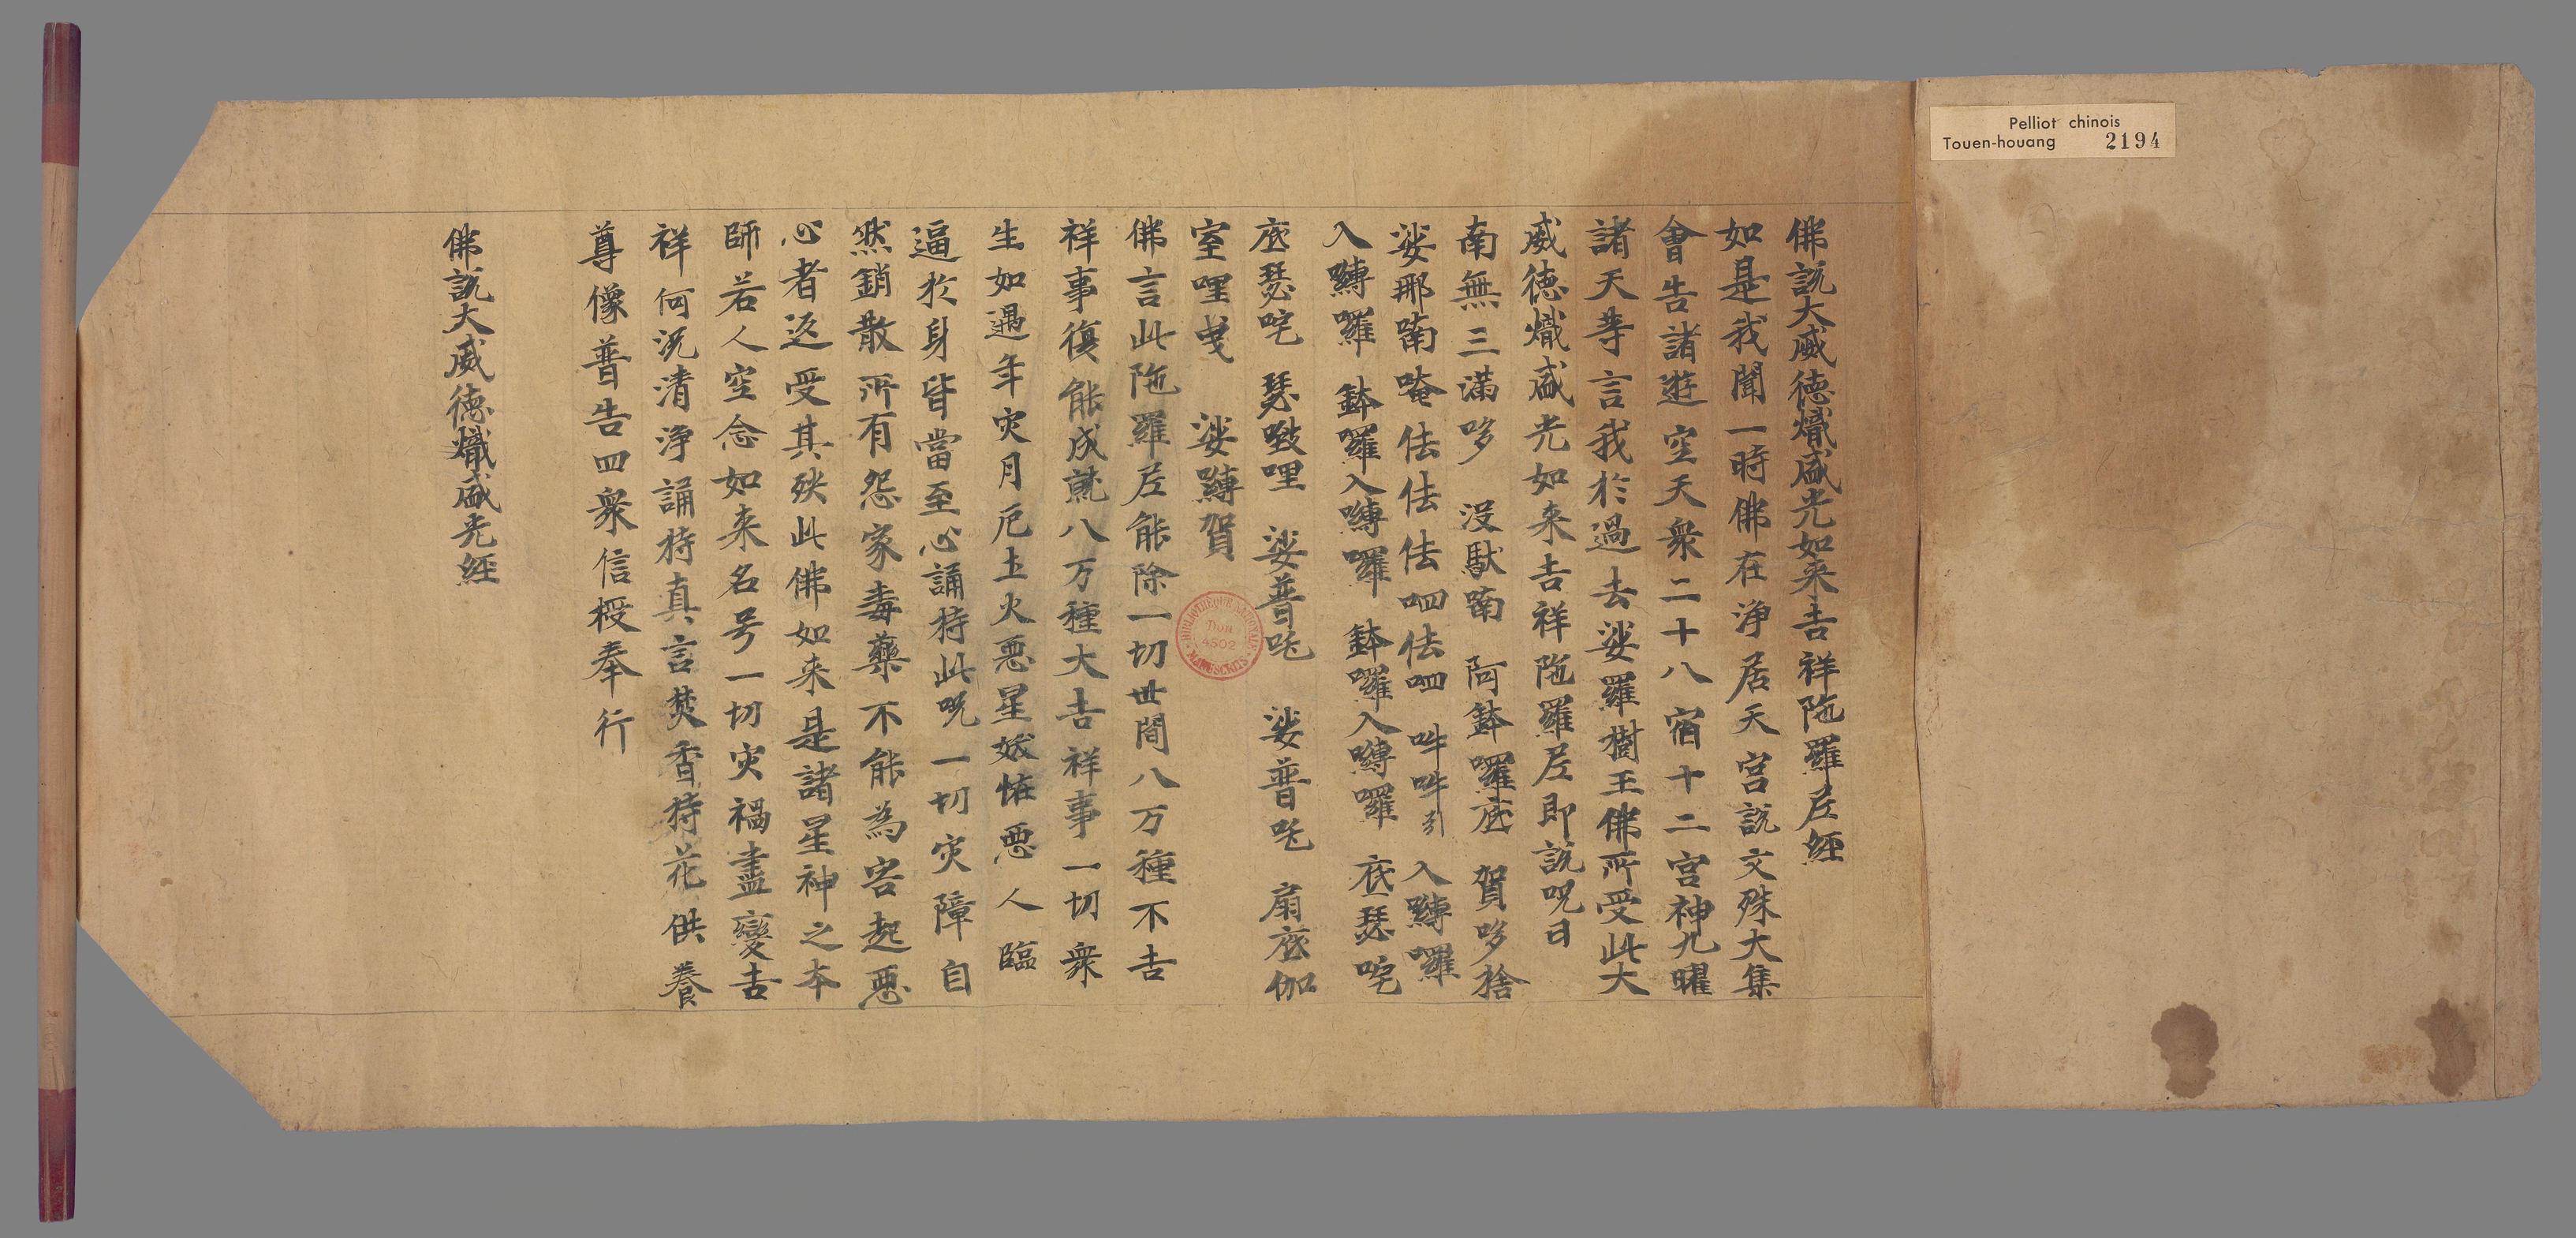 Pelliot chinois
Touen-houang 2194
佛說大威德熾盛光如来吉祥陁羅尼經
如是我聞一時佛在淨居天宮說文殊大集
會告諸遊空天衆二十八宿十二宮神九曜
諸天等言我於過去娑羅樹王佛所受此大
威德熾盛光如来吉祥陁羅尼即說呪曰
南無三滿哆 没馱喃 阿鉢囉底 賀哆捨
娑那喃唵佉佉佉呬佉呬 吽吽引 入嚩囉
入嚩囉 鉢囉入嚩囉 鉢囉入嚩囉 底瑟咤
底瑟咤 瑟致哩 娑普吒 娑普吒 扇底伽
室哩曳 娑嚩賀
佛言此陁羅尼能除一切世間八万種不吉
祥事復能成就八万種大吉祥事一切衆
生如遇年灾月厄土火惡星妖恠惡人臨
逼於身皆當至心誦持此呪一切灾障自
然銷散所有怨家毒藥不能為害起惡
心者返受其殃此佛如来是諸星神之本
師若人空念如来名号一切灾禍盡變吉
祥何況清淨誦持真言焚香持花供養
尊像普告四衆信授奉行
佛說大威德熾盛光經
BIBLIOTHÈQUE NATIONALE
Don
4502
MANUSCRITS